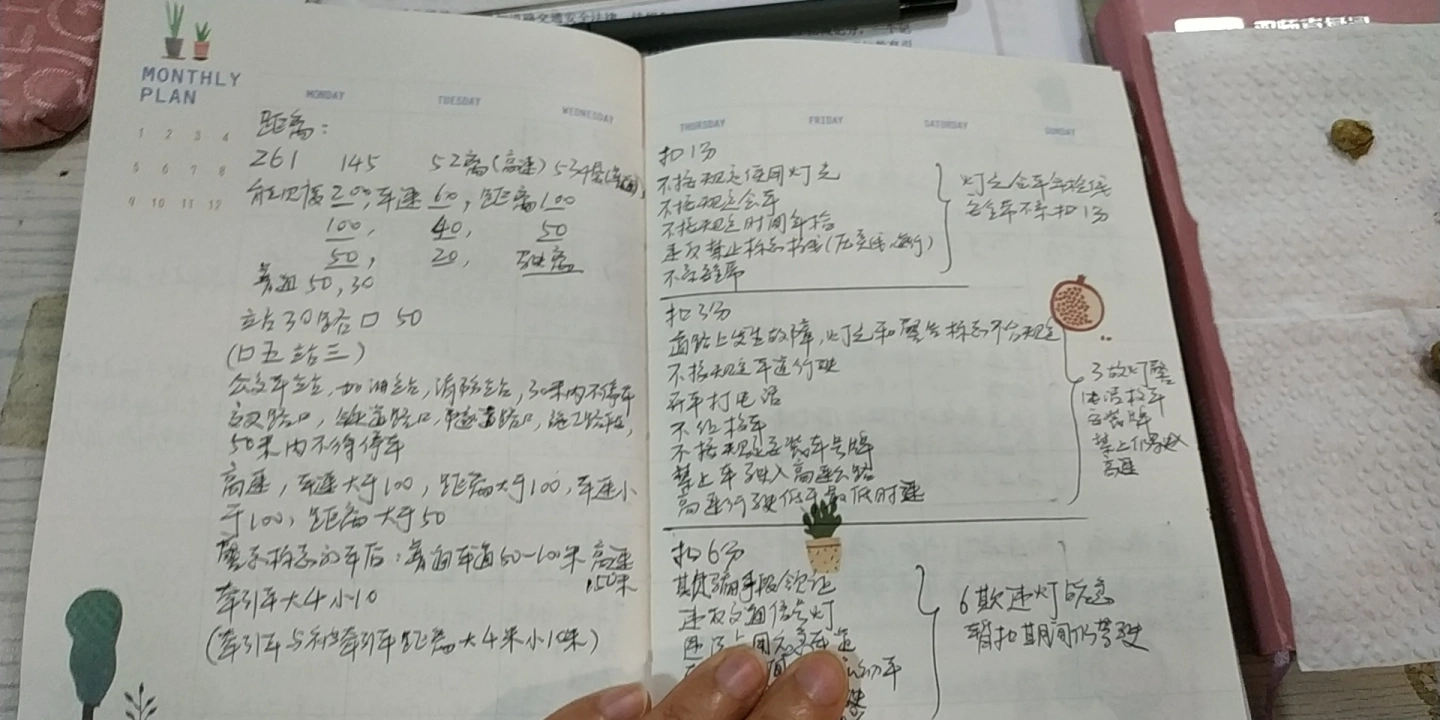 MONTHLY
PLAN
MONDAY
TUESDAY
WEDNESDAY
1 2 3 4
5 6 7 8
9 10 11 12
距离：
261 145 52离(高速)
能见度200,车速60,距离100
100, 40, 50
50, 20, 驶离
普通50,30
站30路口50
(口五站三)
公交车站,加油站,消防站,30米内不停车
交叉路口,铁道路口,窄道路口,施工路段,
50米内不得停车
高速,车速大于100,距离大于100,车速小
于100,距离大于50
警示标志的车后:普通车道50-100米 高速
150米
牵引车大4小10
(牵引车与被牵引车距离大4米小10米)
THURSDAY
FRIDAY
SATURDAY
SUNDAY
扣1分
不按规定使用灯光
不按规定会车
不按规定时间年检
违反禁止标志标线
不系安全带
灯光会车年检线
安全带不系扣1分
扣3分
道路上发生故障,灯光和警告标志不合规定
不按规定车道行驶
开车打电话
不位接车
不按规定安装车号牌
禁止车驶入高速公路
高速行驶低于最低时速
3故灯警
电话校车
安装牌
禁止
高速
扣6分
欺骗手段领证
违反交通信号灯
违法占用应急车道
6欺违灯应急
暂扣期间仍驾驶